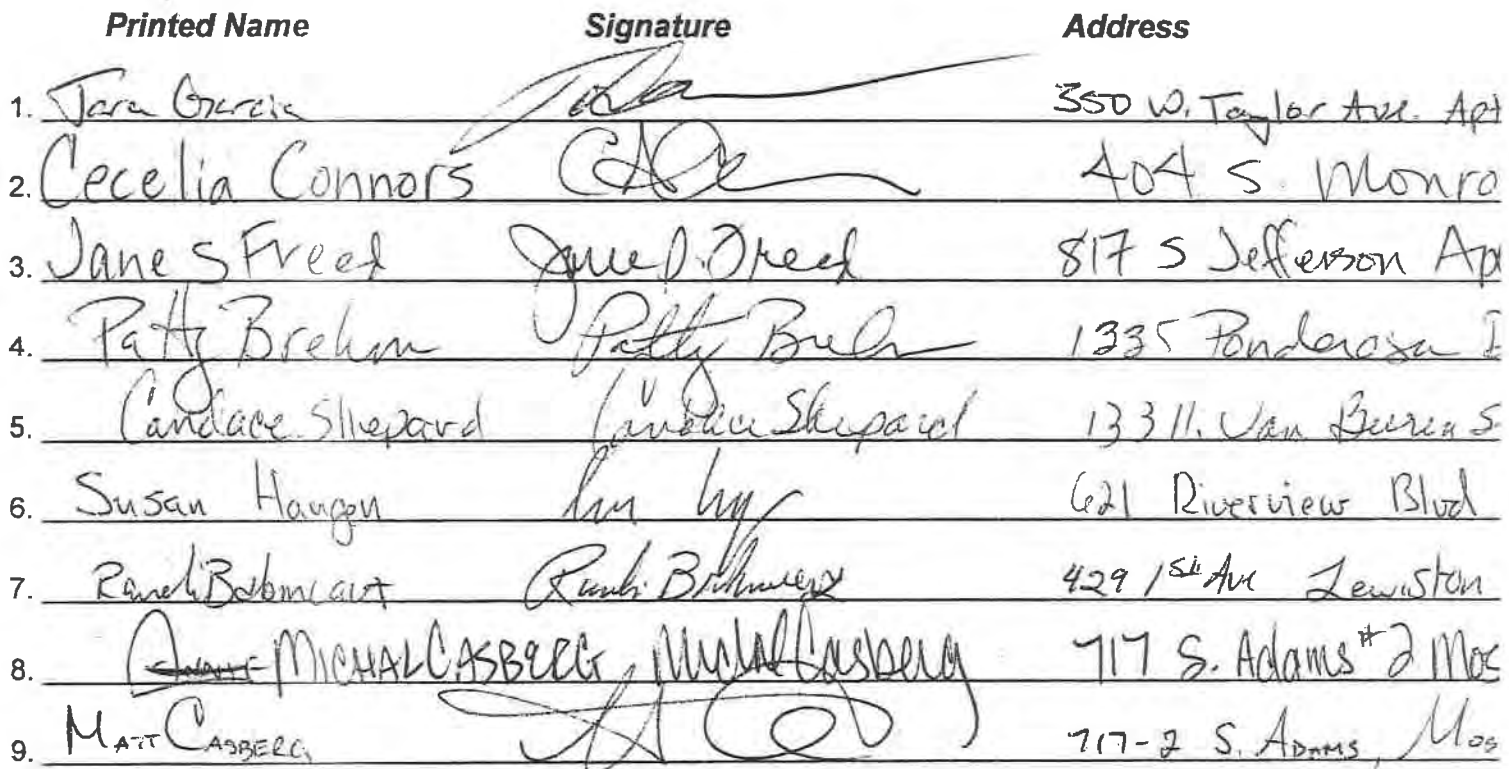 Printed Name Signature Address
1. Tara Garcia 350 W. Taylor Ave. Apt
2. Cecelia Connors 404 S. Monro
3. Jane S Freed Jane S. Freed 817 S Jefferson Ap
4. Patty Brehm Patty Brehm 1335 Ponderosa
5. Candace Shepard Candace Shepard 133 N. Van Buren S
6. Susan 621 Riverview Blvd
7. 429 1st Ave Lewiston
8. MICHAL CASBERG Michal Casberg 717 S. Adams #2 Mos
9. MATT CASBERG 717-2 S. ADAMS, Mos